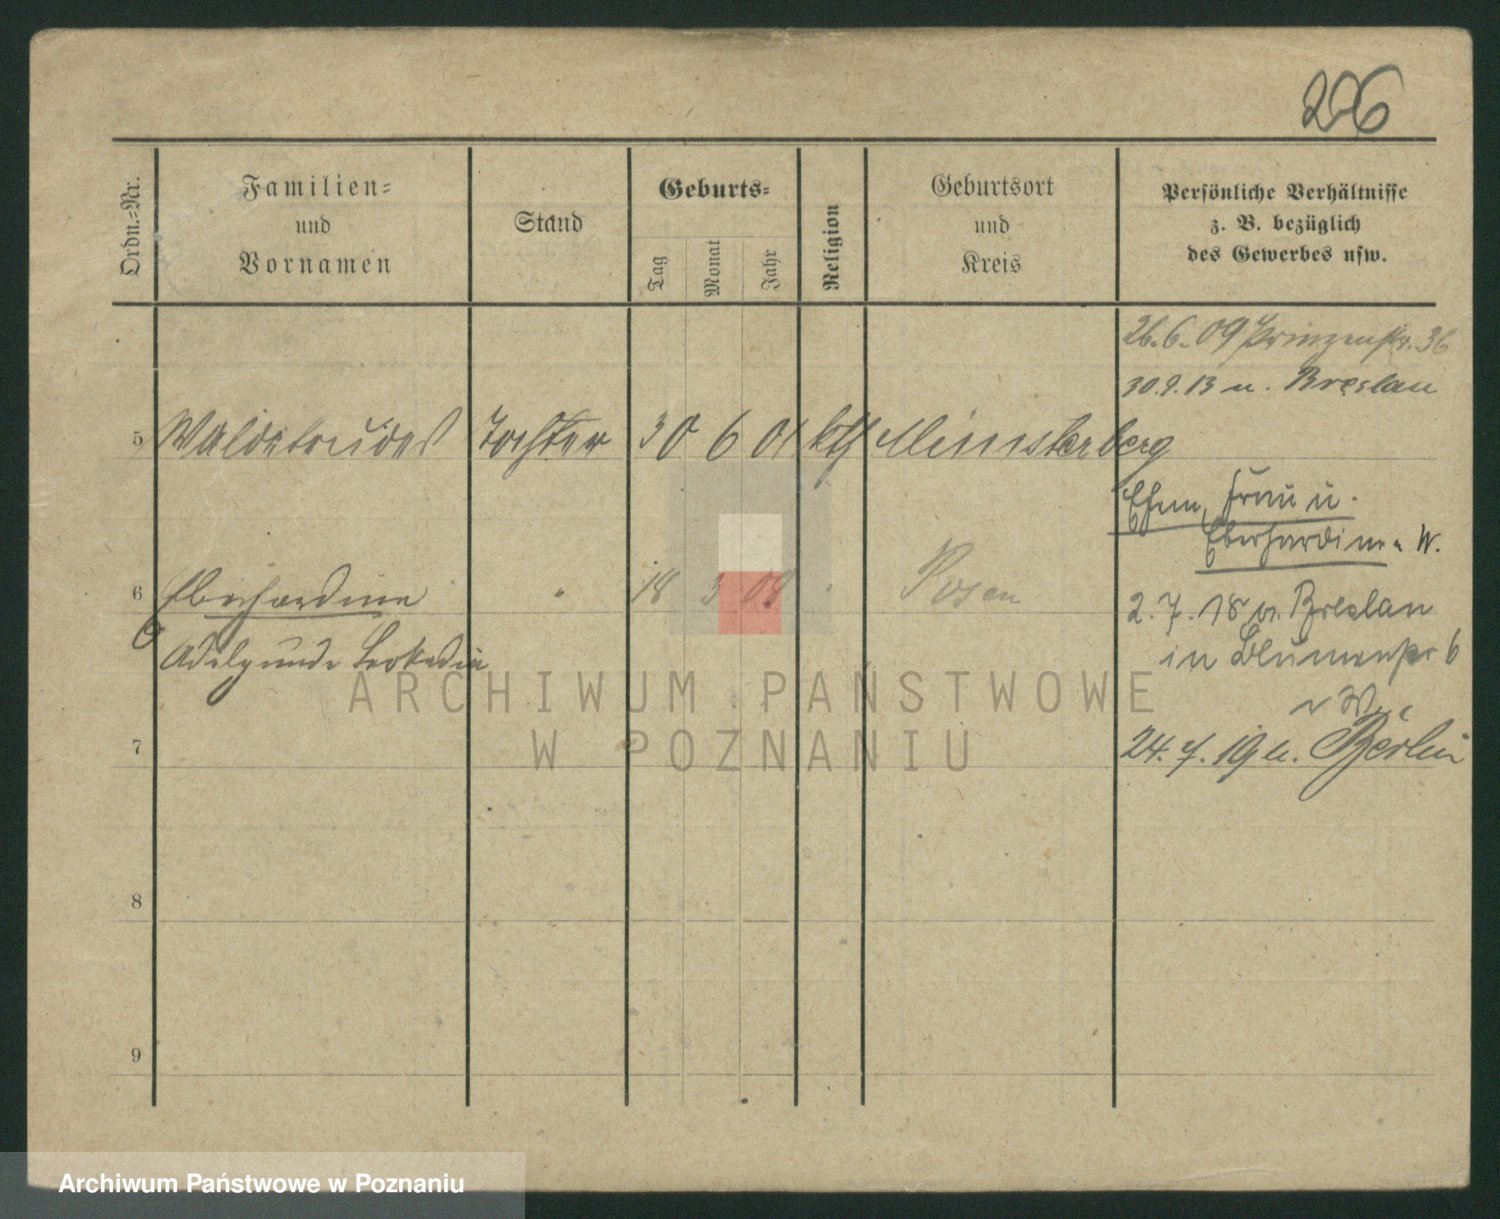 226
Ordn.-Nr.
Familien-
und
Vornamen
Stand
Geburts-
Tag
Monat
Jahr
Religion
Geburtsort
und
Kreis
Persönliche Verhältnisse
z. B. bezüglich
des Gewerbes usw.
26.6.09 Prinzenstr. 36
30.9.13 n. Breslau
5 Waldetrudes Tochter 30 6 01 kth Münsterberg
Ehem, Frau u.
Eberhardine n W.
6 Eberhardine " 18 3 08 " Posen
2.7.18 v. Breslau
Adelgunde Leokadia
in Blumenstr 6
7
24.7.19 n. Berlin
8
9
ARCHIWUM PAŃSTWOWE
W POZNANIU
Archiwum Państwowe w Poznaniu